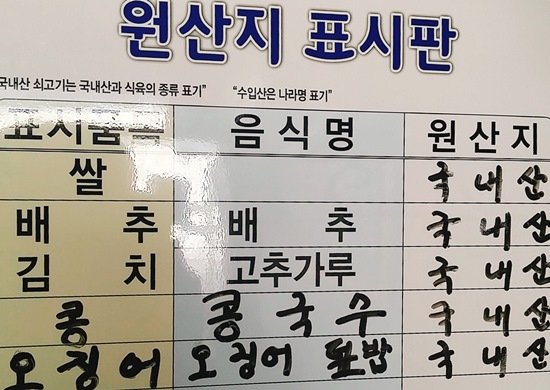 원산지 표시판
국내산 쇠고기는 국내산과 식육의 종류 표기" "수입산은 나라명 표기"
표시품목 음식명 원산지
쌀 국내산
배추 배추 국내산
김치 고추가루 국내산
콩 콩국수 국내산
오징어 오징어 덮밥 국내산